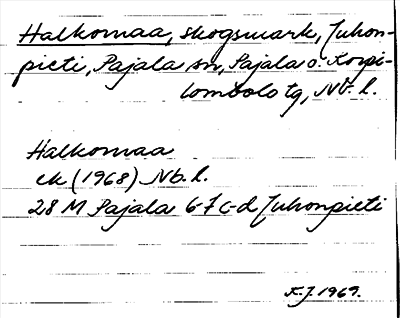 Halkomaa, skogsmark, Juhon-
pieti, Pajala sn, Pajala o. Korpi-
lombolo tg, Nb. l.
Halkomaa
ek (1968) Nb. l.
28 M Pajala 6-7 c-d Juhonpieti
F.J. 1969.